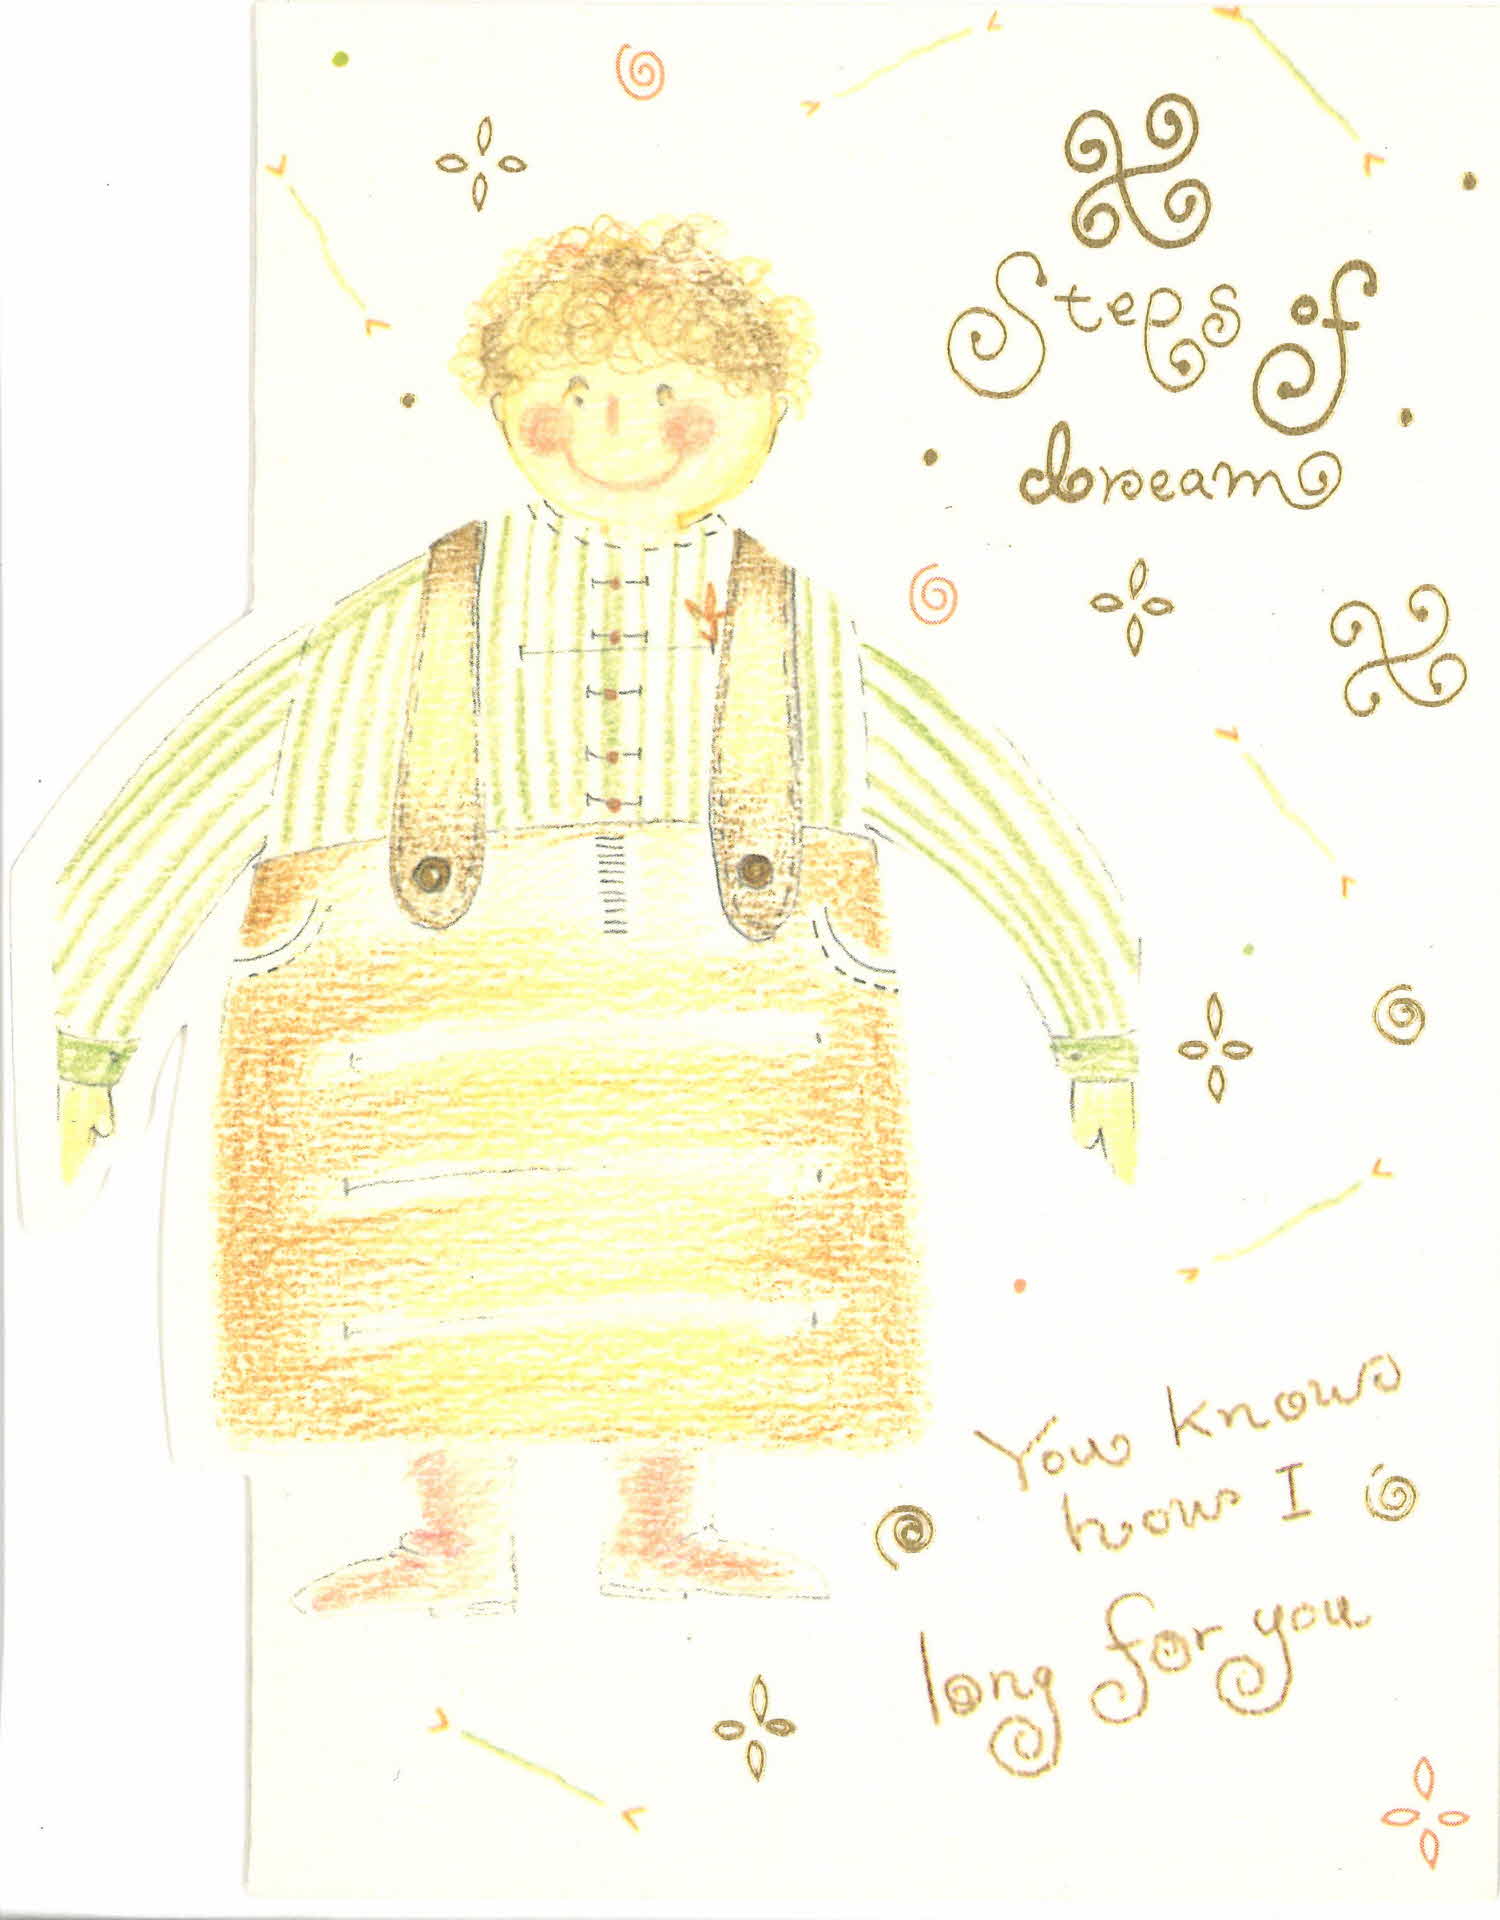 Steps of
dream
You know
how I
long for you